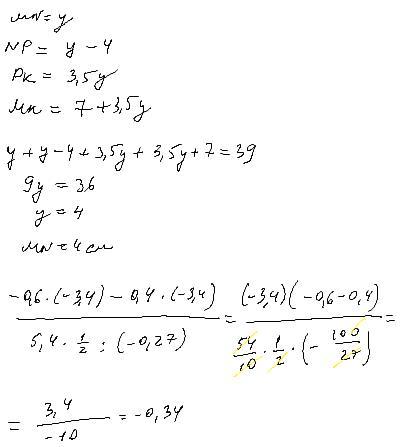 MN = y
NP = y - 4
PK = 3,5y
MK = 7 + 3,5y
y + y - 4 + 3,5y + 3,5y + 7 = 39
9y = 36
y = 4
MN = 4 см
(-0,6 · (-3,4) - 0,4 · (-3,4)) / (5,4 · 1/2 : (-0,27)) = ((-3,4)(-0,6 - 0,4)) / (54/10 · 1/2 · (-100/27)) =
= 3,4 / -10 = -0,34